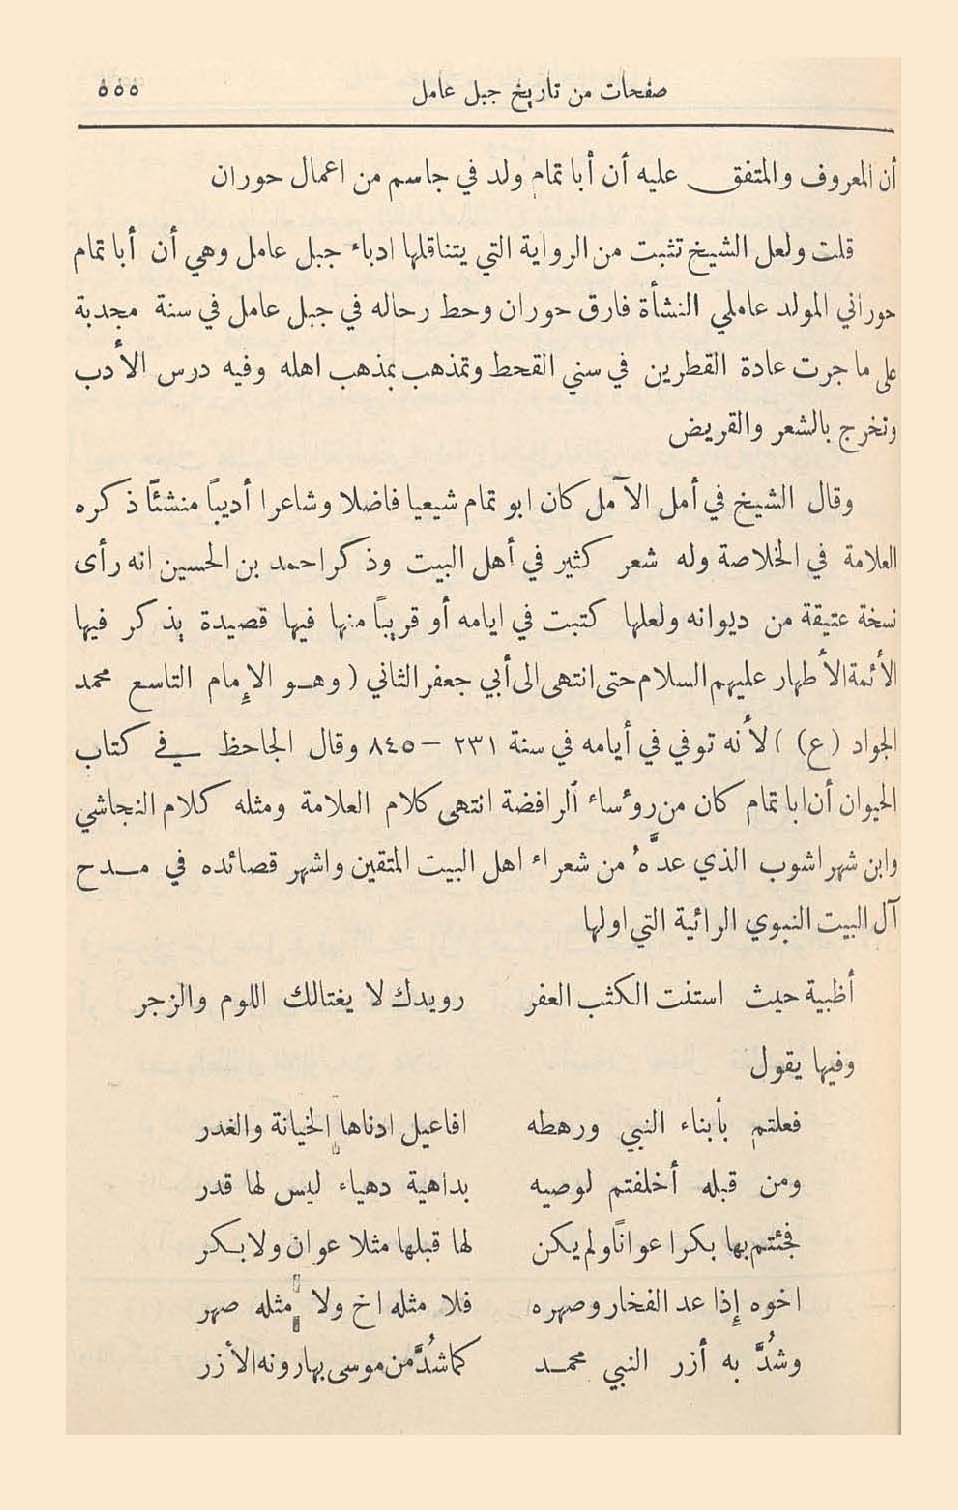 صفحات من تاريخ جبل عامل ٥٥٥
أن المعروف والمتفق عليه أن أبا تمام ولد في جاسم من اعمال حوران
قلت ولعل الشيخ تثبت من الرواية التي يتناقلها ادباء جبل عامل وهي أن أبا تمام
حوراني المولد عاملي النشأة فارق حوران وحط رحاله في جبل عامل في سنة مجدبة
على ما جرت عادة القطرين في سني القحط وتمذهب بمذهب اهله وفيه درس الأدب
وتخرج بالشعر والقريض
وقال الشيخ في أمل الآمل كان ابو تمام شيعيا فاضلا وشاعرا أديباً منشئاً ذكره
العلامة في الخلاصة وله شعر كثير في أهل البيت وذكر احمد بن الحسين انه رأى
نسخة عتيقة من ديوانه ولعلها كتبت في ايامه أو قريباً منها فيها قصيدة يذكر فيها
الأئمة الأطهار عليهم السلام حتى انتهى الى أبي جعفر الثاني (وهو الإمام التاسع محمد
الجواد (ع) ) لأنه توفي في أيامه في سنة ٢٣١ – ٨٤٥ وقال الجاحظ في كتاب
الحيوان أن ابا تمام كان من روءساء الرافضة انتهى كلام العلامة ومثله كلام النجاشي
وابن شهراشوب الذي عدَّه من شعراء اهل البيت المتقين واشهر قصائده في مدح
آل البيت النبوي الرائية التي اولها
أظبية حيث استنت الكثب العفر رويدك لا يغتالك اللوم والزجر
وفيها يقول
فعلتم بأبناء النبي ورهطه افاعيل ادناها الخيانة والغدر
ومن قبله أخلفتم لوصيه بداهية دهياء ليس لها قدر
فجئتم بها بكرا عواناً ولم يكن لها قبلها مثلا عوان ولا بكر
اخوه إذا عد الفخار وصهره فلا مثله اخ ولا مثله صهر
وشُدَّ به أزر النبي محمد كما شُدَّ من موسى بهارونه الأزر